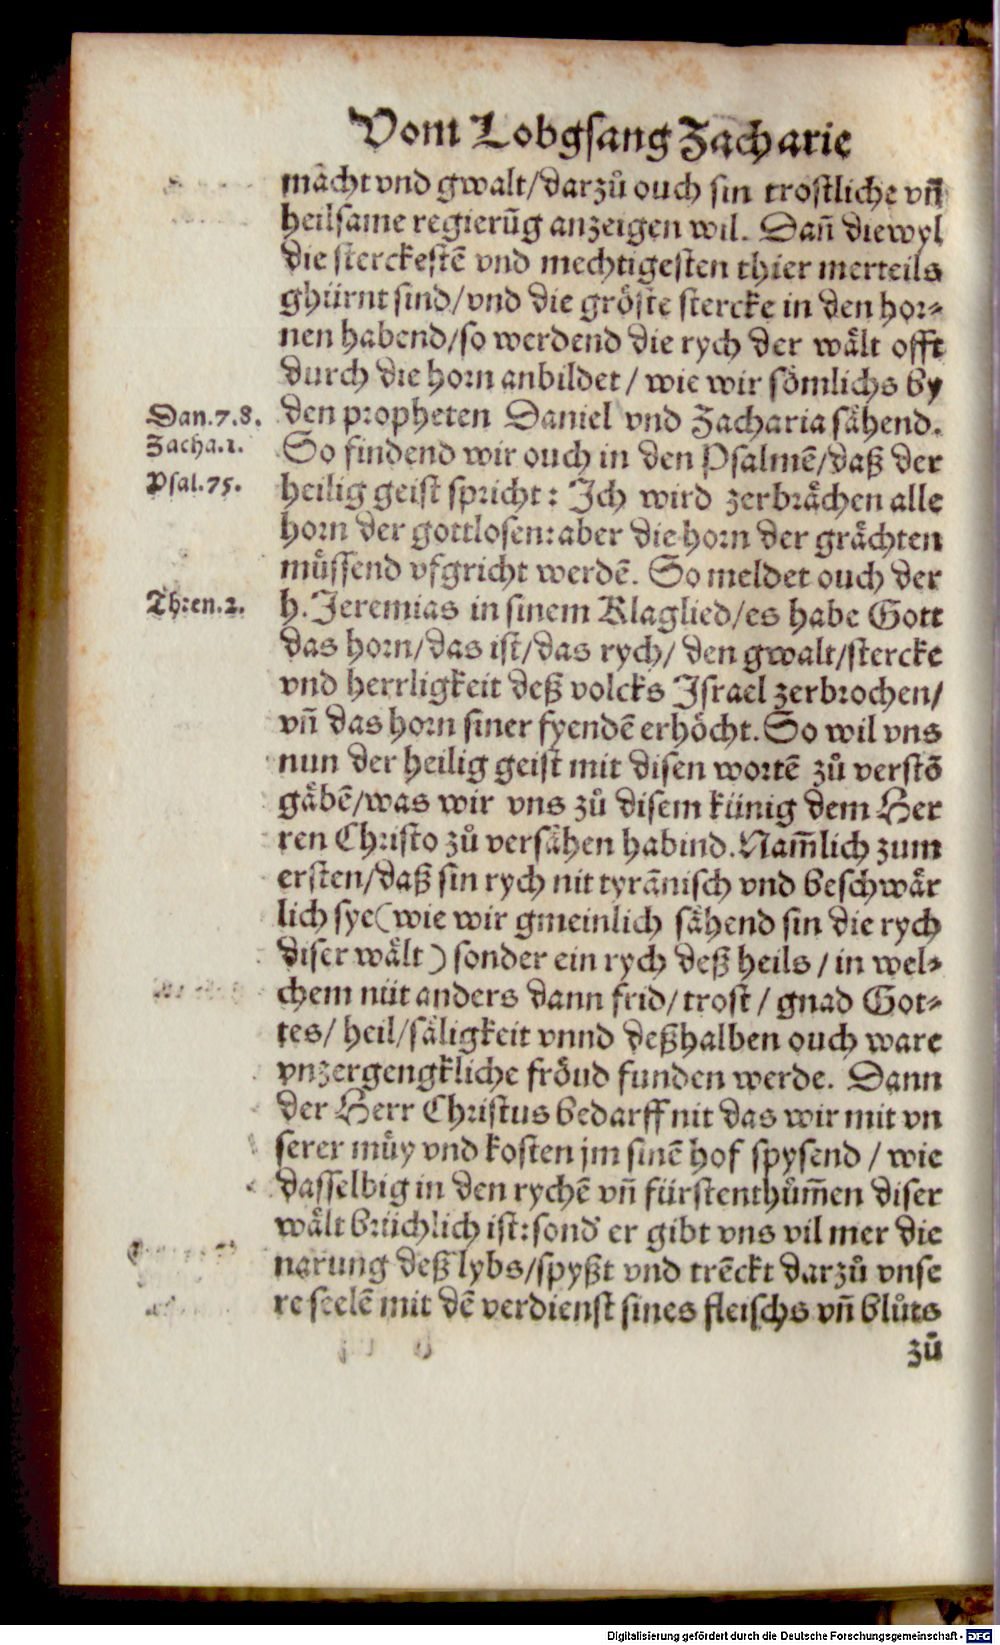 Vom Lobgsang Zacharie
mächt vnd gwalt/darzuͦ ouch sin trostliche vñ
heilsame regierūg anzeigen wil. Dañ diewyl
die sterckestē vnd mechtigesten thier merteils
ghürnt sind/vnd die gröste stercke in den hor-
nen habend/so werdend die rych der wält offt
durch die horn anbildet / wie wir sömlichs by
Dan.7.8.
den propheten Daniel vnd Zacharia sähend.
Zacha.1.
So findend wir ouch in den Psalmē/daß der
Psal.75.
heilig geist spricht: Ich wird zerbrächen alle
horn der gottlosen: aber die horn der grächten
müssend vfgricht werdē. So meldet ouch der
Thren.2.
h. Jeremias in sinem Klaglied/es habe Gott
das horn/das ist/das rych/ den gwalt/stercke
vnd herrligkeit deß volcks Israel zerbrochen/
vñ das horn siner fyendē erhöcht. So wil vns
nun der heilig geist mit disen wortē zuͦ verstō
gäbē/was wir vns zuͦ disem künig dem Her
ren Christo zuͦ versähen habind. Nam̄lich zum
ersten/daß sin rych nit tyrānisch vnd beschwär
lich sye (wie wir gmeinlich sähend sin die rych
diser wält) sonder ein rych deß heils / in wel-
chem nüt anders dann frid/ trost / gnad Got-
tes/ heil/säligkeit vnnd deßhalben ouch ware
vnzergengkliche fröud funden werde. Dann
der Herr Christus bedarff nit das wir mit vn
serer müy vnd kosten jm sinē hof spysend / wie
dasselbig in den rychē vñ fürstenthuͦm̄en diser
wält brüchlich ist: sond' er gibt vns vil mer die
narung deß lybs/spyßt vnd trēckt darzuͦ vnse
re seelē mit dē verdienst sines fleischs vñ bluͦts
zuͦ
Digitalisierung gefördert durch die Deutsche Forschungsgemeinschaft - DFG